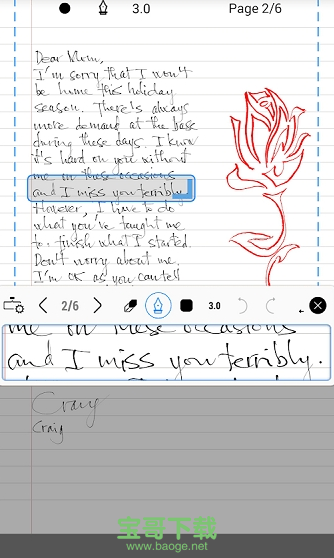 3.0 Page 2/6
Dear Mom,
I'm sorry that I won't
be home this holiday
season. There's always
more demand at the base
during these days. I know
it's hard on you without
me in these occasions
and I miss you terribly.
However, I have to do
what you've taught me
to finish what I started.
Don't worry about me,
I'm OK as you can tell
2/6 3.0
me in these occasions
and I miss you terribly.
Craig
Craig
宝哥下载
www.baoge.net